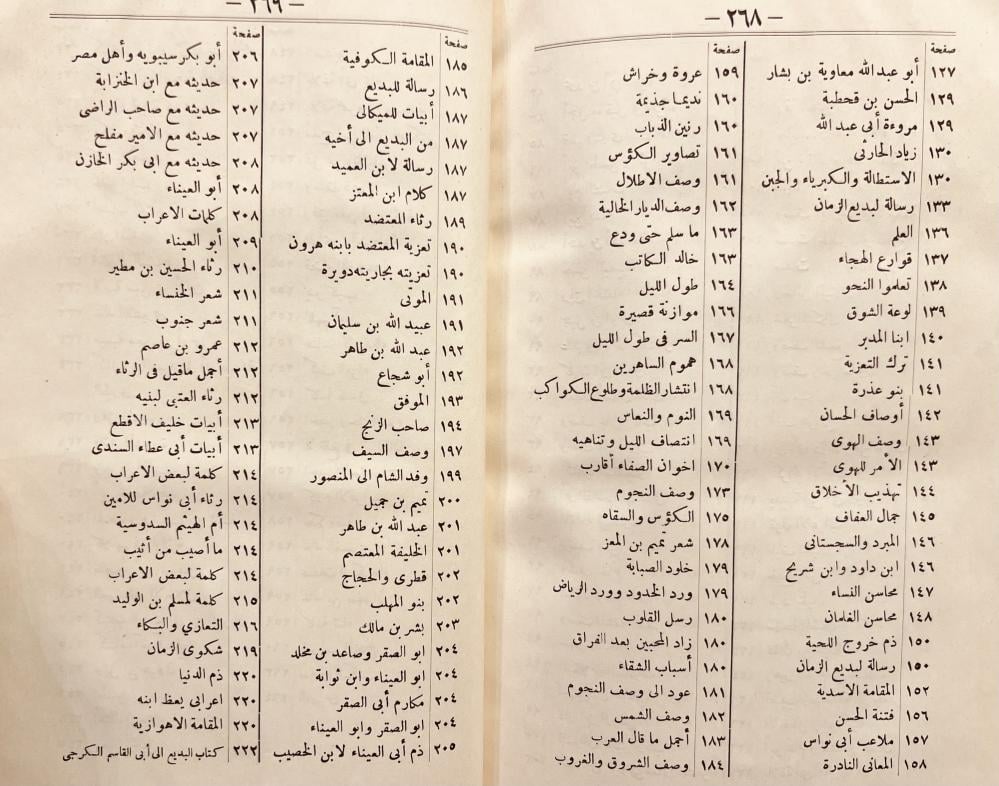 — ٢٦٨ —
صفحة
١٢٧ أبو عبد الله معاوية بن بشار
١٢٩ الحسن بن قحطبة
١٢٩ مروءة أبى عبد الله
١٣٠ زياد الحارثى
١٣٠ الاستطالة والكبرياء والجبن
١٣٣ رسالة لبديع الزمان
١٣٦ العلم
١٣٧ قوارع الهجاء
١٣٨ تعلموا النحو
١٣٩ لوعة الشوق
١٤٠ ابنا المدبر
١٤١ ترك التعزية
١٤١ بنو عذرة
١٤٢ أوصاف الحسان
١٤٣ وصف الهوى
١٤٣ الأمر للهوى
١٤٤ تهذيب الأخلاق
١٤٥ جمال العفاف
١٤٦ المبرد والسجستانى
١٤٦ ابن داود وابن شريح
١٤٧ محاسن النساء
١٤٨ محاسن الغلمان
١٥٠ ذم خروج اللحية
١٥٠ رسالة لبديع الزمان
١٥٢ المقامة الاسدية
١٥٦ فتنة الحسن
١٥٧ ملاعب أبى نواس
١٥٨ المعانى النادرة
صفحة
١٥٩ عروة وخراش
١٦٠ نديما جذيمة
١٦٠ رنين الذباب
١٦١ تصاوير الكؤس
١٦١ وصف الاطلال
١٦٢ وصف الديار الخالية
١٦٣ ما سلم حتى ودع
١٦٣ خالد الكاتب
١٦٤ طول الليل
١٦٦ موازنة قصيرة
١٦٧ السر فى طول الليل
١٦٨ هموم الساهرين
١٦٨ انتشار الظلمة وطلوع الكواكب
١٦٩ النوم والنعاس
١٦٩ انتصاف الليل وتناهيه
١٧٠ اخوان الصفاء أقارب
١٧٣ وصف النجوم
١٧٥ الكؤس والسقاه
١٧٨ شعر تميم بن المعز
١٧٩ خلود الصبابة
١٧٩ ورد الخدود وورد الرياض
١٨٠ رسل القلوب
١٨٠ زاد المحبين بعد الفراق
١٨٠ أسباب الشقاء
١٨١ عود الى وصف النجوم
١٨٢ وصف الشمس
١٨٣ أجمل ما قال العرب
١٨٤ وصف الشروق والغروب
— ٢٦٩ —
صفحة
١٨٥ المقامة الكوفية
١٨٦ رسالة للبديع
١٨٧ أبيات للميكالى
١٨٧ من البديع الى أخيه
١٨٧ رسالة لابن العميد
١٨٧ كلام ابن المعتز
١٨٩ رثاء المعتضد
١٩٠ تعزية المعتضد بابنه هرون
١٩٠ تعزيته بجاريته دويرة
١٩١ الموتى
١٩١ عبيد الله بن سليمان
١٩٢ عبد الله بن طاهر
١٩٢ أبو شجاع
١٩٣ الموفق
١٩٤ صاحب الزنج
١٩٧ وصف السيف
١٩٩ وفد الشام الى المنصور
٢٠٠ تميم بن جميل
٢٠١ عبد الله بن طاهر
٢٠١ الخليفة المعتصم
٢٠٢ قطرى والحجاج
٢٠٢ بنو المهلب
٢٠٣ بشر بن مالك
٢٠٤ ابو الصقر وصاعد بن مخلد
٢٠٤ ابو العيناء وابن ثوابة
٢٠٤ مكارم أبى الصقر
٢٠٤ ابو الصقر وابو العيناء
٢٠٥ ذم أبى العيناء لابن الخصيب
صفحة
٢٠٦ أبو بكر سيبويه وأهل مصر
٢٠٧ حديثه مع ابن الخنزابة
٢٠٧ حديثه مع صاحب الراضى
٢٠٧ حديثه مع الامير مفلح
٢٠٨ حديثه مع ابى بكر الخازن
٢٠٨ أبو العيناء
٢٠٨ كلمات الاعراب
٢٠٩ أبو العيناء
٢١٠ رثاء الحسين بن مطير
٢١١ شعر الخنساء
٢١١ شعر جنوب
٢١٢ عمرو بن عاصم
٢١٢ أجمل ماقيل فى الرثاء
٢١٢ رثاء العتبى لبنيه
٢١٣ أبيات خليف الاقطع
٢١٣ أبيات أبى عطاء السندى
٢١٤ كلمة لبعض الاعراب
٢١٤ رثاء أبى نواس للامين
٢١٤ أم الهيثم السدوسية
٢١٤ ما أصيب من أثيب
٢١٤ كلمة لبعض الاعراب
٢١٥ كلمة لمسلم بن الوليد
٢١٦ التعازي والبكاء
٢١٩ شكوى الزمان
٢٢٠ ذم الدنيا
٢٢٠ اعرابى يعظ ابنه
٢٢٠ المقامة الاهوازية
٢٢٢ كتاب البديع الى أبى القاسم الكرجى